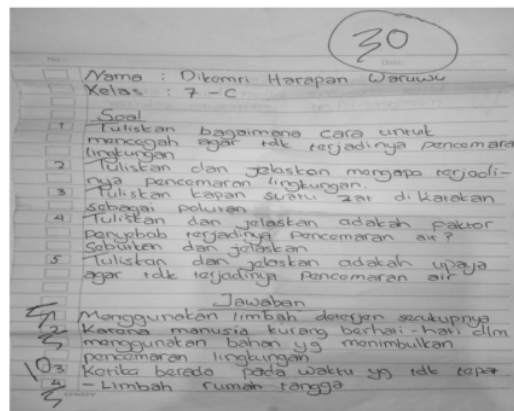 30
No :
Date :
Nama : Dikemri Harapan Waruwu
Kelas : 7-C
Soal
1 Tuliskan bagaimana cara untuk
mencegah agar tdk terjadinya pencemaran
lingkungan
2 Tuliskan dan jelaskan mengapa terjadi-
nya pencemaran lingkungan.
3 Tuliskan kapan suatu zat dikatakan
sebagai polutan
4 Tuliskan dan jelaskan adakah faktor
penyebab terjadinya pencemaran air?
Sebutkan dan jelaskan
5 Tuliskan dan jelaskan adakah upaya
agar tdk terjadinya pencemaran air
Jawaban
Menggunakan limbah deterjen secukupnya
Karena manusia kurang berhati-hati dlm
menggunakan bahan yg menimbulkan
pencemaran lingkungan
10 3 Ketika berada pada waktu yg tdk tepat
4 - Limbah rumah tangga